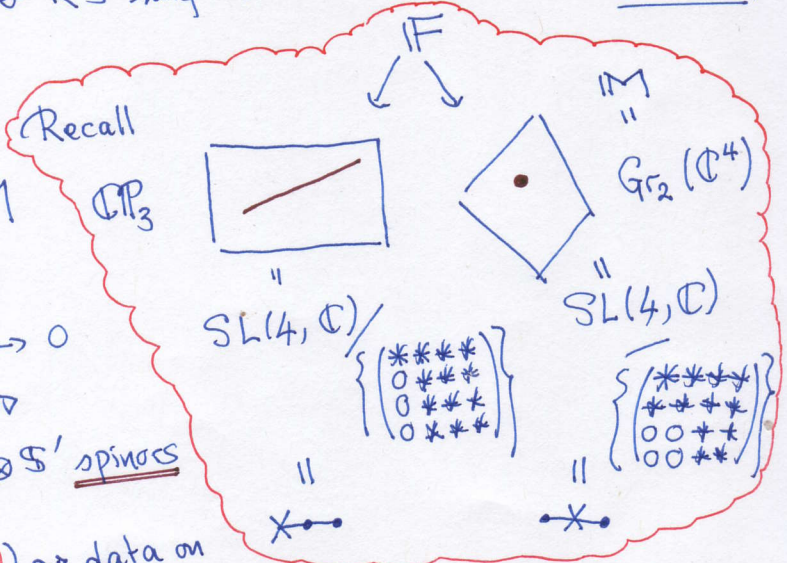 𝔽
𝕄
Recall
=
ℂℙ₃
Gr₂(ℂ⁴)
= =
SL(4, ℂ)/
SL(4, ℂ)/
→ 0
{( * * * *
0 * * *
0 * * *
0 * * * )}
{( * * * *
* * * *
0 0 * *
0 0 * * )}
⊗ $' spinors
= =
×—•—•
•—×—•
data on